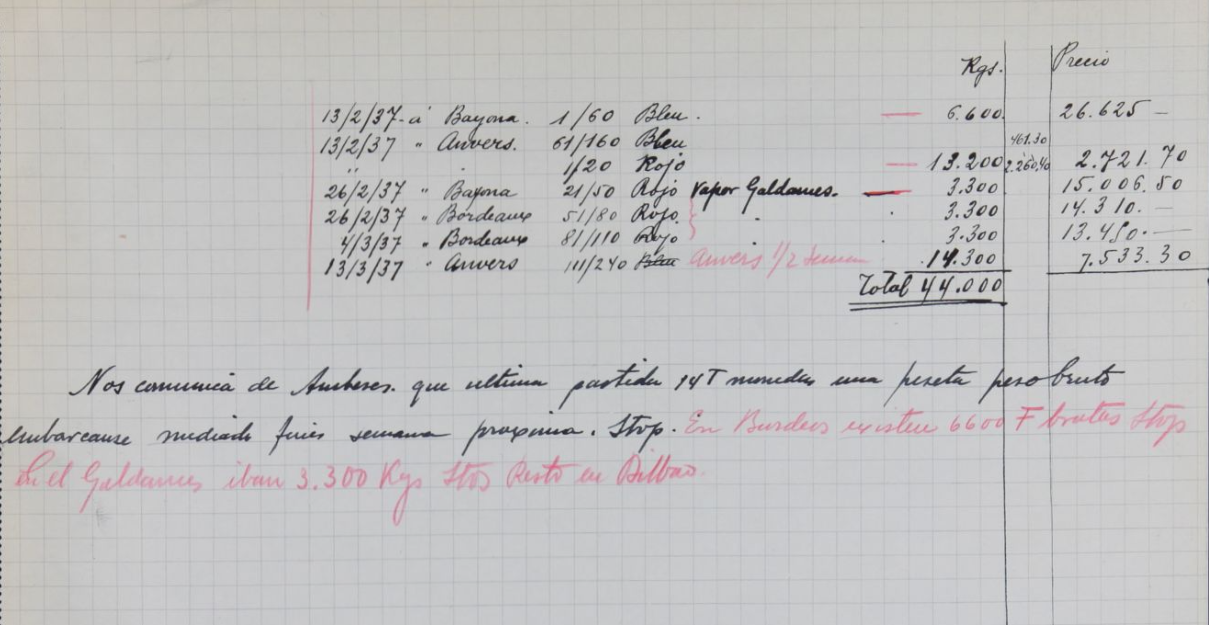 Kgs. Precio
13/2/37 - a Bayona. 1/60 Bleu. — 6.600 26.625 —
13/2/37 " Anvers. 61/160 Bleu 461.30
" " 1/20 Rojo — 13.200 2.260.40 2.721.70
26/2/37 " Bayona 21/50 Rojo vapor Galdames. — 3.300 15.006.50
26/2/37 " Bordeaux 51/80 Rojo. " " 3.300 14.310. —
4/3/37 " Bordeaux 81/110 Rojo " 3.300 13.450. —
13/3/37 " Anvers 111/240 Bleu Anvers 1/2 14.300 7.533.30
Total 44.000
Nos comunica de Amberes. que ultima partida 14 T monedas una peseta peso bruto
embarcause mediado fines semana proxima. Stop. En Burdeos existen 6600 F brutos Stop
En el Galdames iban 3.300 Kgs Stos Resto en Bilbao.